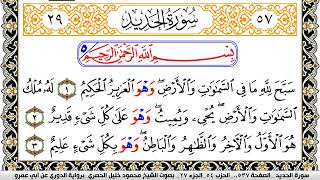 ٥٧ سورة الحديد ٢٩
بِسْمِ اللَّهِ الرَّحْمَٰنِ الرَّحِيمِ
سَبَّحَ لِلَّهِ مَا فِي السَّمَٰوَٰتِ وَالْأَرْضِ وَهْوَ الْعَزِيزُ الْحَكِيمُ ١ لَهُ مُلْكُ
السَّمَٰوَٰتِ وَالْأَرْضِ يُحْيِي وَيُمِيتُ وَهْوَ عَلَىٰ كُلِّ شَيْءٍ قَدِيرٌ ٢
هُوَ الْأَوَّلُ وَالْآخِرُ وَالظَّٰهِرُ وَالْبَاطِنُ وَهْوَ بِكُلِّ شَيْءٍ عَلِيمٌ ٣
سورة الحديد .. الصفحة ٥٣٧.. الحزب ٥٤.. الجزء ٢٧ .. بصوت الشيخ محمود خليل الحصري .برواية الدوري عن أبي عمرو